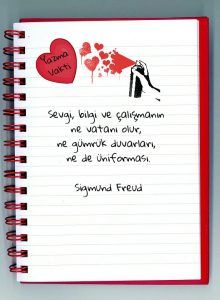 Yazma
Vakti
Sevgi, bilgi ve çalışmanın
ne vatanı olur,
ne gümrük duvarları,
ne de üniforması.
Sigmund Freud